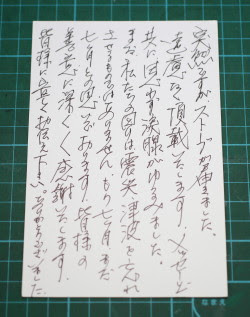 突然ですがストーブが届きました。
遠慮なく頂戴いたします。メッセージと
共に思わず涙腺がゆるみました。
まだ私たちの周りは震災、津波を忘れ
させるものではありません。もう七ヶ月まだ
七ヶ月と思いでおります。皆様の
善意に深く〱感謝いたします。
皆様に宜しくお伝え下さい。ありがとうございました。